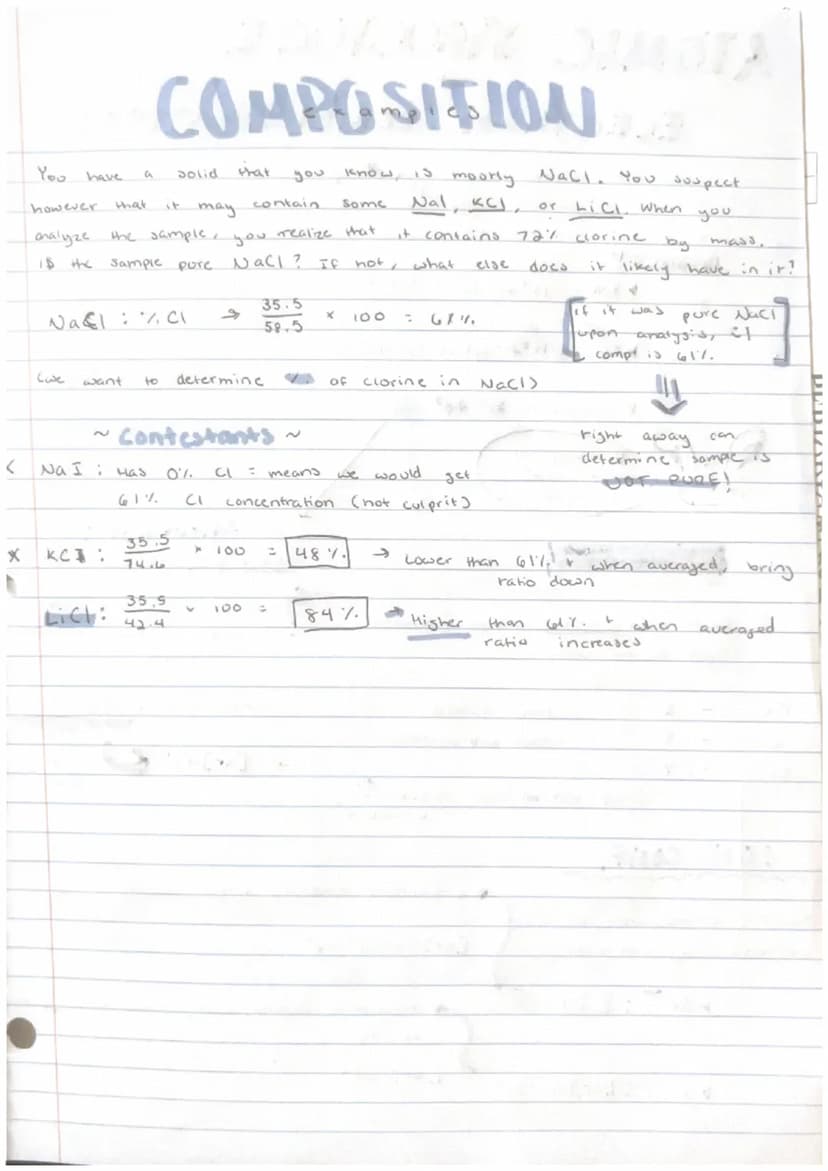 COMPOSITION
examples
You have a solid that you know, is moorly NaCl. You suspect
however that it may contain some NaI, KCl, or LiCl. When you
analyze the sample, you realize that it contains 72% clorine by mass.
is the sample pure NaCl? If not, what else does it likely have in it?
NaCl : % Cl → 35.5/58.5 × 100 = 61%
[if it was pure NaCl
upon analysis, Cl
compt is 61%.]
(we want to determine % of clorine in NaCl)
~ Contestants ~
right away can
determine sample is
NOT PURE!
NaI : Has 0% Cl = means we would get
61% Cl concentration (not culprit)
× KCl : 35.5/74.6 × 100 = 48% → Lower than 61% + when averaged, bring
ratio down
LiCl : 35.5/42.4 × 100 = 84% → Higher than 61% + when averaged
ratio increases